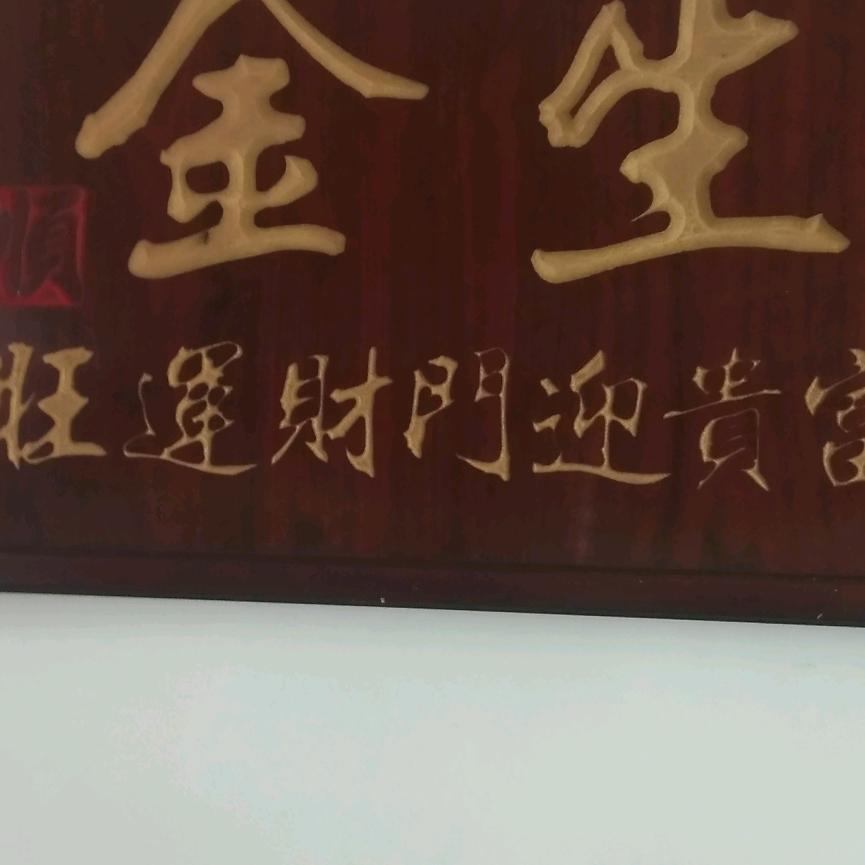 生金
富貴迎門財運旺
順